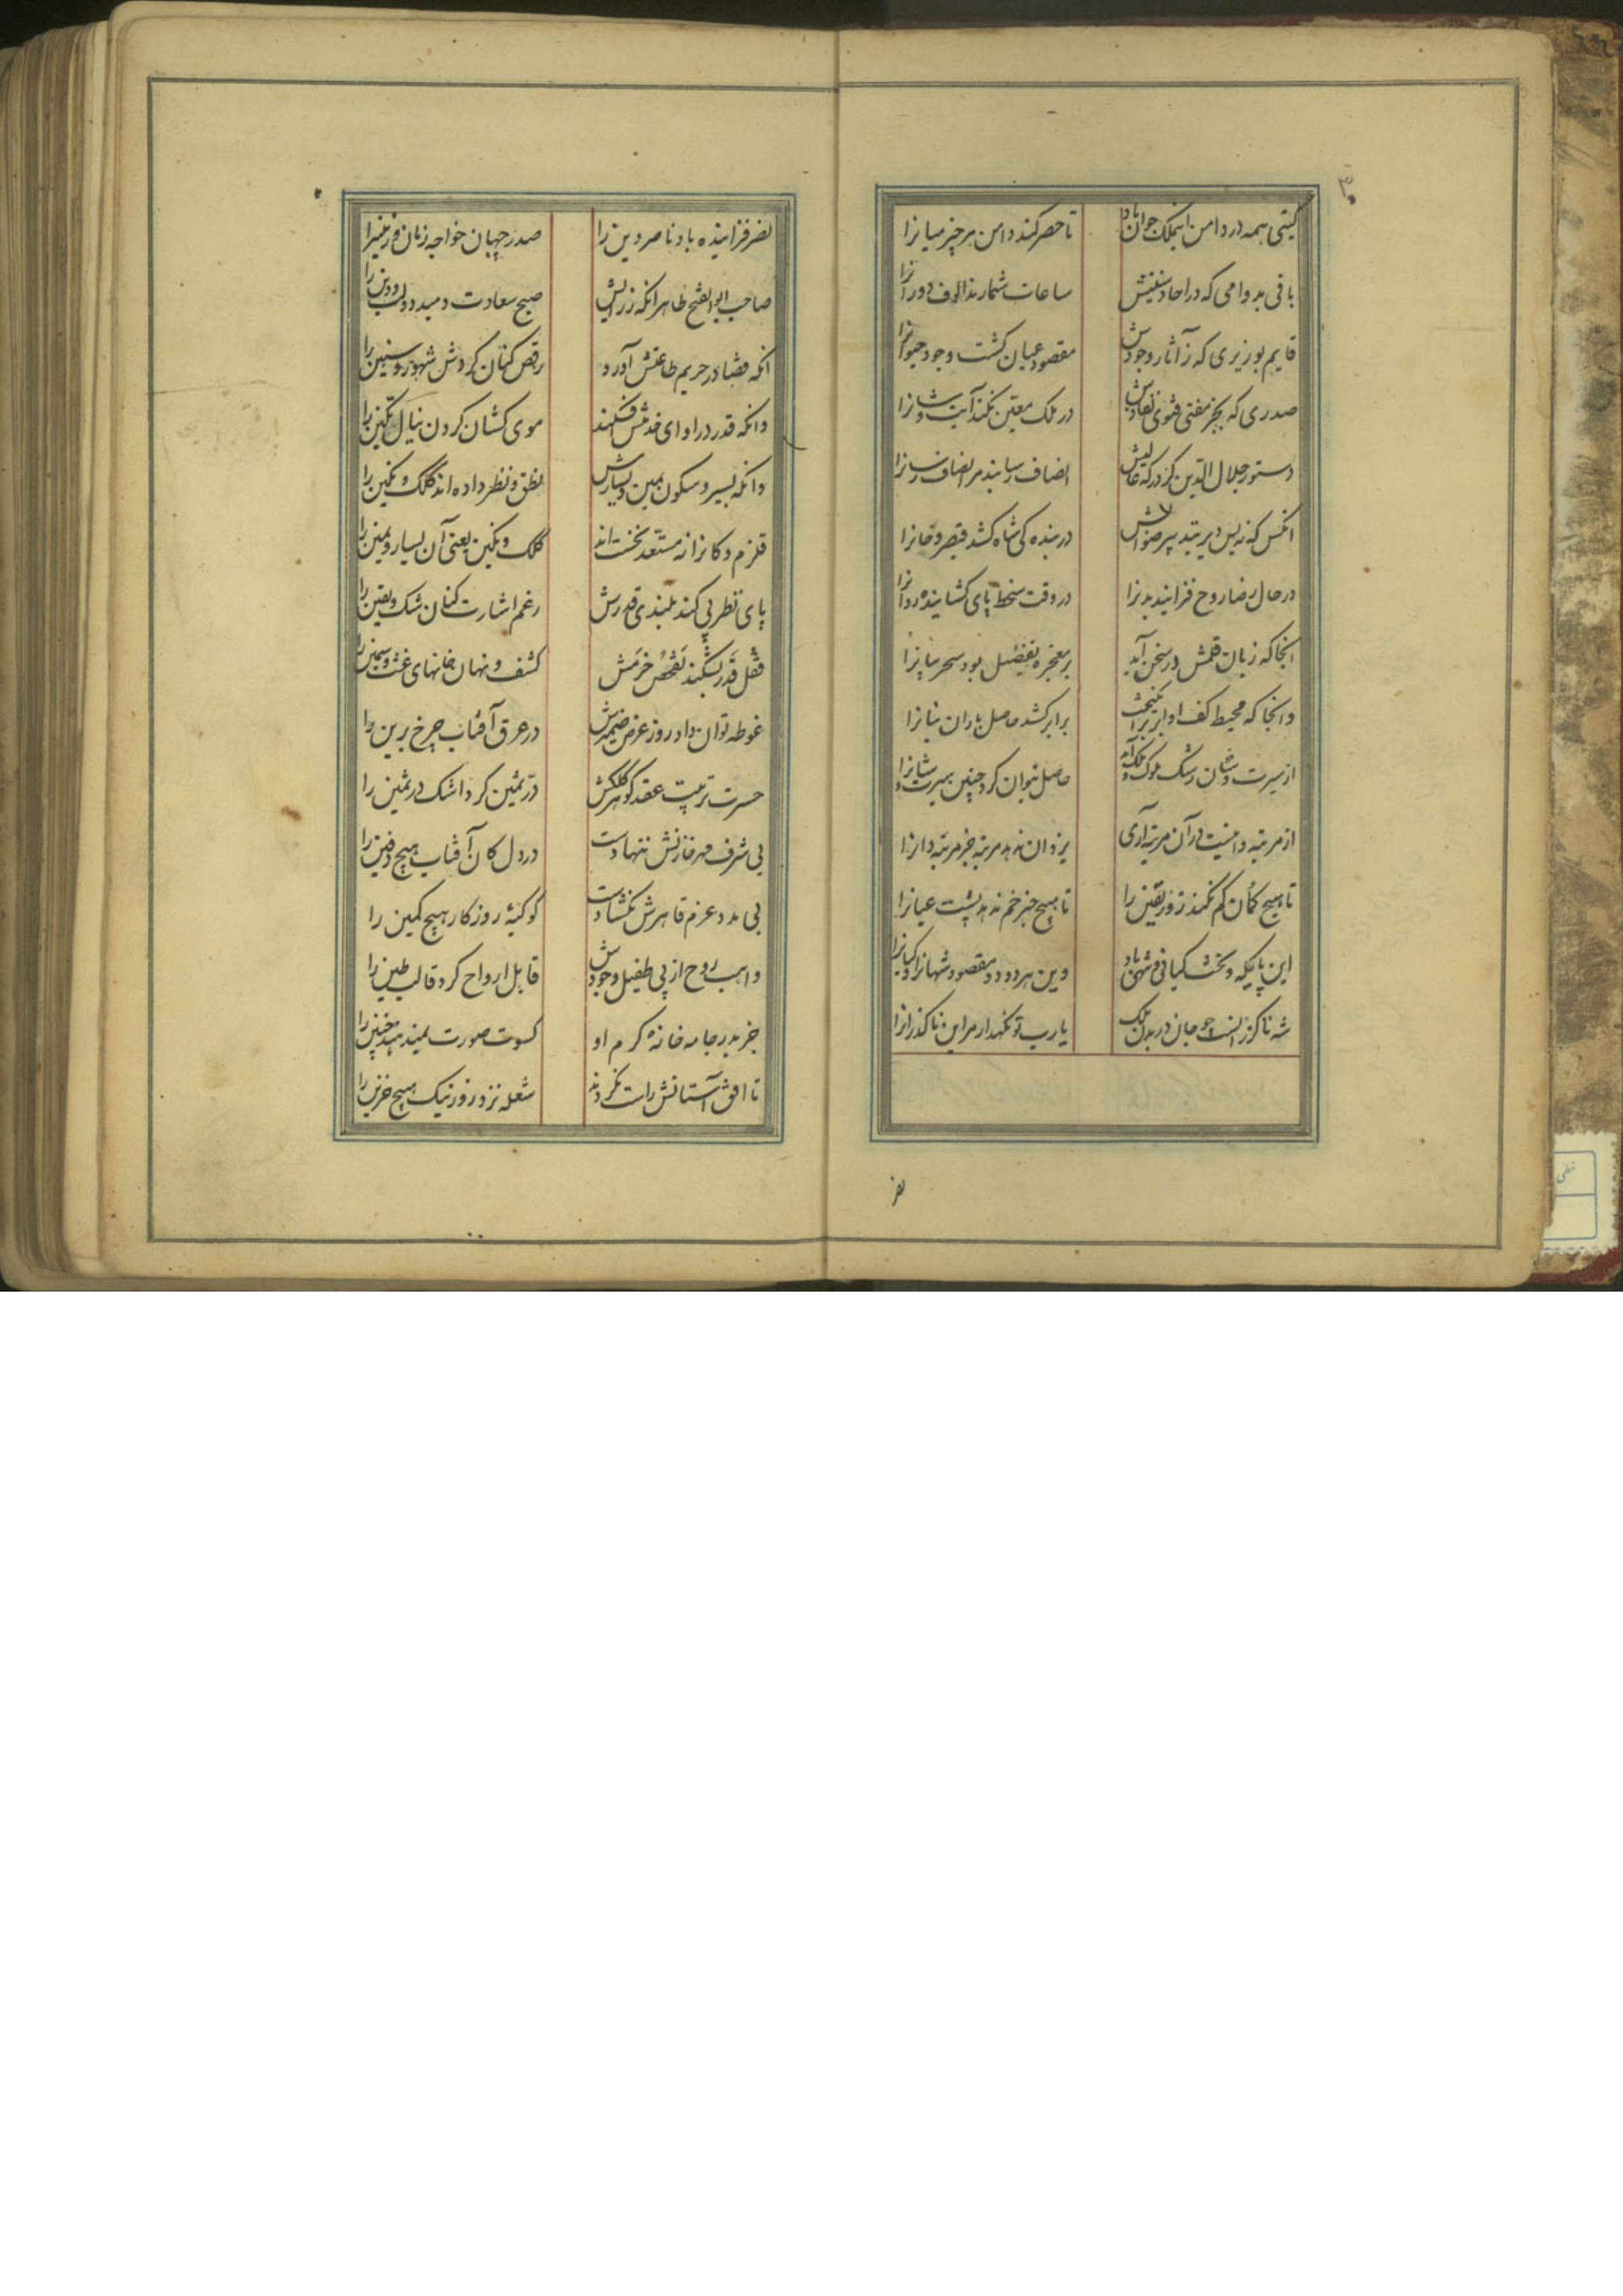 گیتی همه در دامن این ملک جوان باد تا حصر کند دامن هر چیز میانرا
باقی بدوامی که در احاد سنینش ساعات شمارند الوف دورانرا
قایم بوزیری که ز آثار وجودش مقصود عیان گشت وجود حیوانرا
صدری که بجز مفتی فتوی نفاذش در ملک معین نکند آیت و شانرا
دستور جلال الدین کز درگه عالیش انصاف رسانند مر انصاف رسانرا
در بنده کی شاه کشد قیصر و خانرا
در حال رضا روح فزایند بدنرا در وقت سخط پای گشاینده روانرا
آنجا که زبان قلمش در سخن آید بر معجزه تفضیل بود سحر بیانرا
وانجا که محیط کف او ابر برانگیخت بر ابر کشد حاصل باران بنانرا
از سیرت و سان رشک ملوک و ملک آمد حاصل نتوان کرد چنین سیرت و سانرا
از مرتبه دانیست در آن مرتبه آری یزدان ندهد مرتبه جز مرتبه دانرا
تا هیچ گمان کم نکند زور یقین را تا هیچ خبر خم ندهد پشت عیانرا
این پایگه و تخت کیانی و شهی باد وین هر دو دو مقصود شهانرا و کیانرا
شه ناگزرانست چو جان در بدن ملک یارب تو نگهدار مر این ناگذرانرا
نصر
نصر فزاینده باد ناصر دین را صدر جهان خواجه زمان و زمینرا
صاحب ابوالفتح طاهر آنکه ز رایش صبح سعادت دمید دولت و دین را
آنکه قضا در حریم طاعتش آورد رقص کنان گردش شهور و سنین را
وانکه قدر در ادای خدمتش افکند موی کشان گردن ینال تگین را
وانکه بسیر و سکون یمین و یسارش نطق و نظر داده اند کلک و نگین را
قلزم و کانرا نه مستعد نخست اند کلک و نگین یعنی آن یسار و یمین را
پای نظر پی کند بلندی قدرش رغم اشارت کنان شک و یقین را
قفل قدر بشکند تفحص خرمش کشف و نهان خانهای غث و سمین را
غوطه توان داد روز عرض ضمیرش در عرق آفتاب چرخ برین را
حسرت ترتیب عقد گوهر کلکش در ثمین کرد اشک در ثمین را
بی شرف مهر خازنش ننهادست در دل کان آفتاب هیچ دفین را
بی مدد عزم قاهرش نگشادست کوکبه روزگار هیچ کمین را
واهب روح از پی طفیل وجودش قابل ارواح کرد قالب طین را
جز بدر جامه خانه کرم او کسوت صورت نمیدهند جنین را
تا افق آستانش راست نکردند شعله نزد روز نیک هیچ حزین را